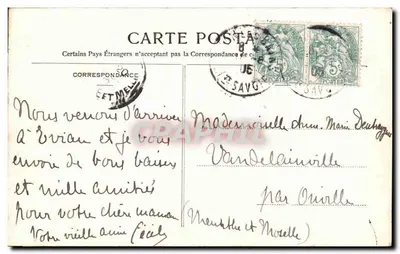 CARTE POSTALE
Certains Pays Étrangers n'acceptent pas la Correspondance
CORRESPONDANCE
Nous venons d'arriver
à Evian et je vous
envoie de bons baisers
et mille amitiés
pour votre chère maman
Votre vieille amie Cécile
Mademoiselle Anne Marie
Vandelainville
par Onville
(Meurthe et Moselle)
8
06
SAVOIE
ET MELLE
06
5
SAVOIE